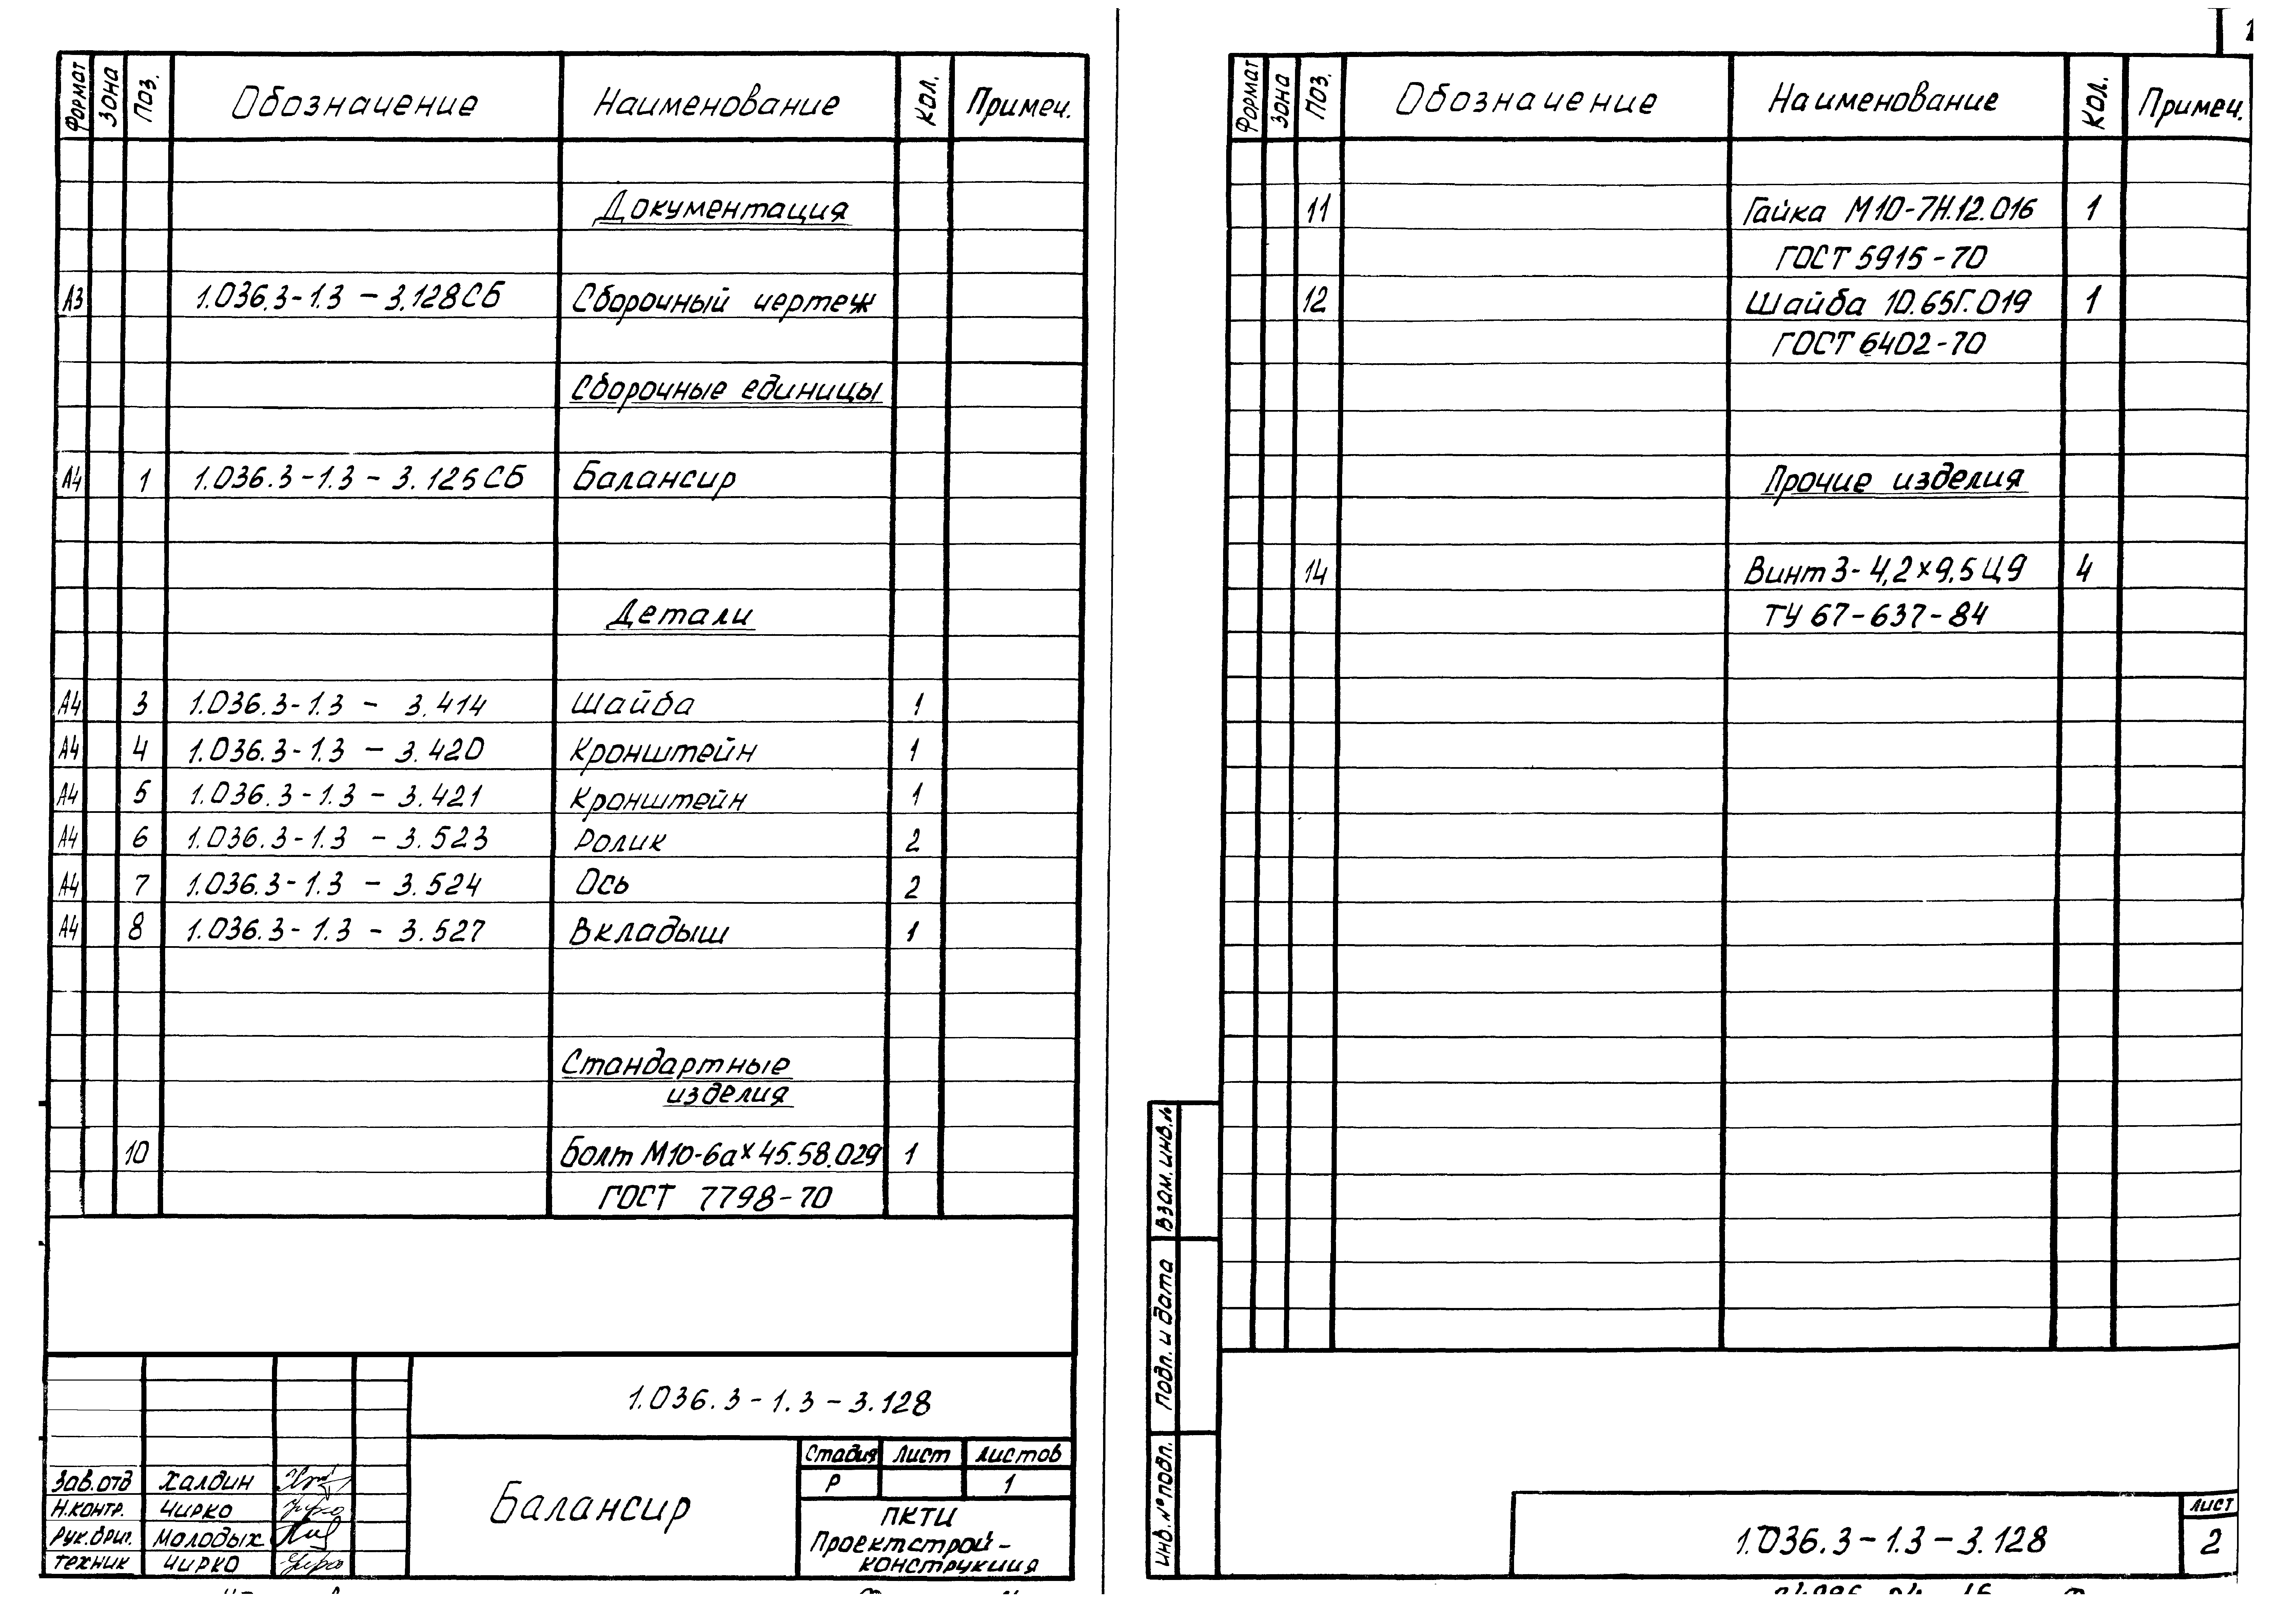 Формат Зона Поз. Обозначение Наименование Кол. Примеч.
Документация
А3 1.036.3-1.3 - 3.128СБ Сборочный чертеж
Сборочные единицы
А4 1 1.036.3-1.3 - 3.126СБ Балансир
Детали
А4 3 1.036.3-1.3 - 3.414 Шайба 1
А4 4 1.036.3-1.3 - 3.420 Кронштейн 1
А4 5 1.036.3-1.3 - 3.421 Кронштейн 1
А4 6 1.036.3-1.3 - 3.523 Ролик 2
А4 7 1.036.3-1.3 - 3.524 Ось 2
А4 8 1.036.3-1.3 - 3.527 Вкладыш 1
Стандартные
изделия
10 Болт М10-6а×45.58.029 1
ГОСТ 7798-70
1.036.3-1.3-3.128
Балансир
Стадия Лист Листов
Р 1
ПКТИ
Проектстрой-
конструкция
Зав.отд Халдин
Н.контр. Чирко
Рук.бриг. Молодых
Техник Чирко
Формат Зона Поз. Обозначение Наименование Кол. Примеч.
11 Гайка М10-7Н.12.016 1
ГОСТ 5915-70
12 Шайба 10.65Г.019 1
ГОСТ 6402-70
Прочие изделия
14 Винт 3-4,2×9,5 Ц9 4
ТУ 67-637-84
Взам. инв. №
Подп. и дата
Инв. № подл.
1.036.3-1.3-3.128
Лист
2